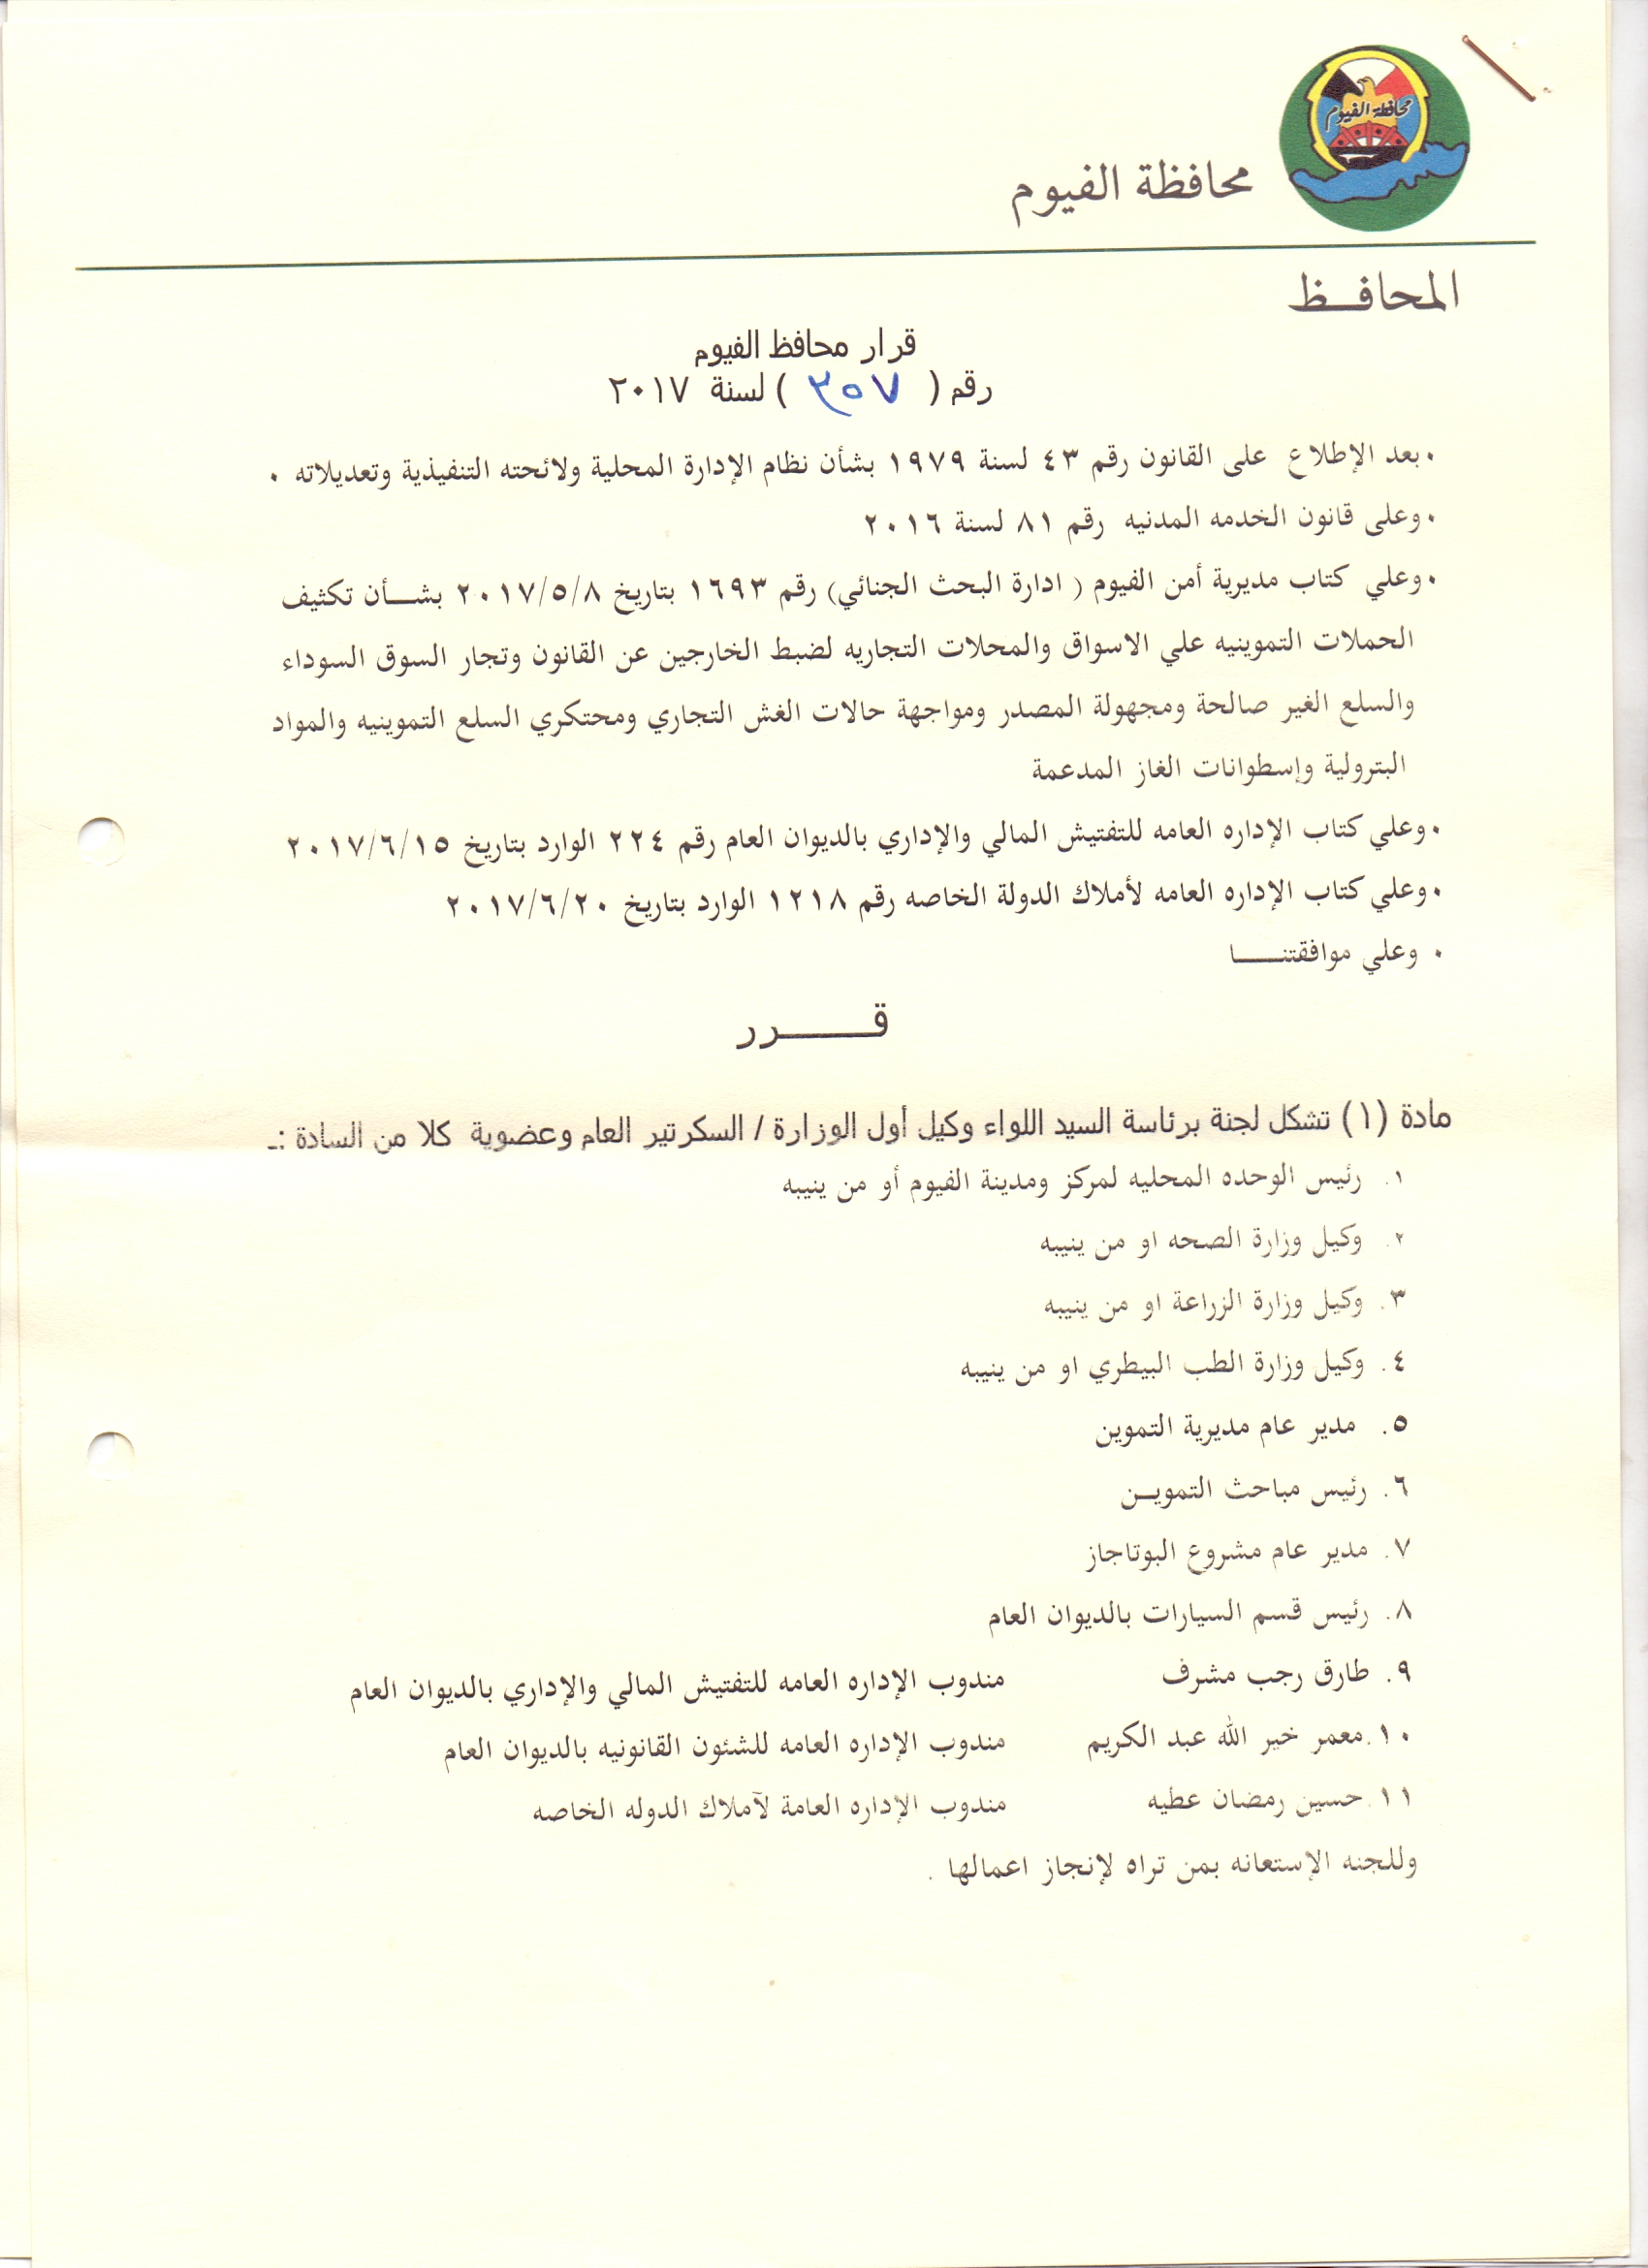 محافظة الفيوم
محافظة الفيوم
المحافــظ
قرار محافظ الفيوم
رقم ( ٣٥٧ ) لسنة ٢٠١٧
٠ بعد الإطلاع على القانون رقم ٤٣ لسنة ١٩٧٩ بشأن نظام الإدارة المحلية ولائحته التنفيذية وتعديلاته ٠
٠ وعلى قانون الخدمه المدنيه رقم ٨١ لسنة ٢٠١٦
٠ وعلي كتاب مديرية أمن الفيوم ( ادارة البحث الجنائي) رقم ١٦٩٣ بتاريخ ٢٠١٧/٥/٨ بشـــأن تكثيف
الحملات التموينيه علي الاسواق والمحلات التجاريه لضبط الخارجين عن القانون وتجار السوق السوداء
والسلع الغير صالحة ومجهولة المصدر ومواجهة حالات الغش التجاري ومحتكري السلع التموينيه والمواد
البترولية وإسطوانات الغاز المدعمة
٠ وعلي كتاب الإداره العامه للتفتيش المالي والإداري بالديوان العام رقم ٢٢٤ الوارد بتاريخ ٢٠١٧/٦/١٥
٠ وعلي كتاب الإداره العامه لأملاك الدولة الخاصه رقم ١٢١٨ الوارد بتاريخ ٢٠١٧/٦/٢٠
٠ وعلي موافقتنــــا
قـــــرر
مادة (١) تشكل لجنة برئاسة السيد اللواء وكيل أول الوزارة / السكرتير العام وعضوية كلا من السادة :ـ
١. رئيس الوحده المحليه لمركز ومدينة الفيوم أو من ينيبه
٢. وكيل وزارة الصحه او من ينيبه
٣. وكيل وزارة الزراعة او من ينيبه
٤. وكيل وزارة الطب البيطري او من ينيبه
٥. مدير عام مديرية التموين
٦. رئيس مباحث التمويــن
٧. مدير عام مشروع البوتاجاز
٨. رئيس قسم السيارات بالديوان العام
٩. طارق رجب مشرف مندوب الإداره العامه للتفتيش المالي والإداري بالديوان العام
١٠. معمر خير الله عبد الكريم مندوب الإداره العامه للشئون القانونيه بالديوان العام
١١. حسين رمضان عطيه مندوب الإداره العامة لآملاك الدوله الخاصه
وللجنه الإستعانه بمن تراه لإنجاز اعمالها .